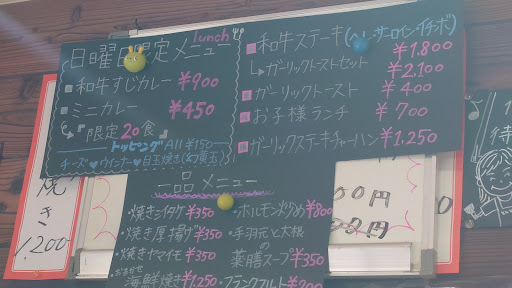 日曜日限定メニュー
lunch
■和牛すじカレー ¥900
■ミニカレー ¥450
『限定20食』
トッピング All ¥150
チーズ♥ウインナー♥目玉焼き(幻黄玉)
■和牛ステーキ(ヘレ・サーロイン・イチボ)
¥1,800
ガーリックトーストセット ¥2,100
■ガーリックトースト ¥400
■お子様ランチ ¥700
■ガーリックステーキチャーハン ¥1,250
一品メニュー
・焼きシイタケ ¥350
・焼き厚揚げ ¥350
・焼きヤマイモ ¥350
おまかせ
海鮮焼き ¥1,250
・ホルモン炒め ¥800
・手羽元と大根
の
薬膳スープ ¥350
・フランクフルト ¥200
焼き
1,200
00円
円
0
待